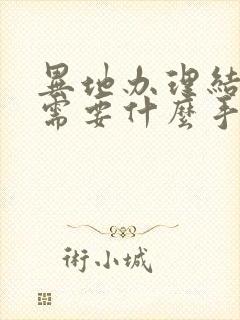 異地办理結
需要什麼手
術小城